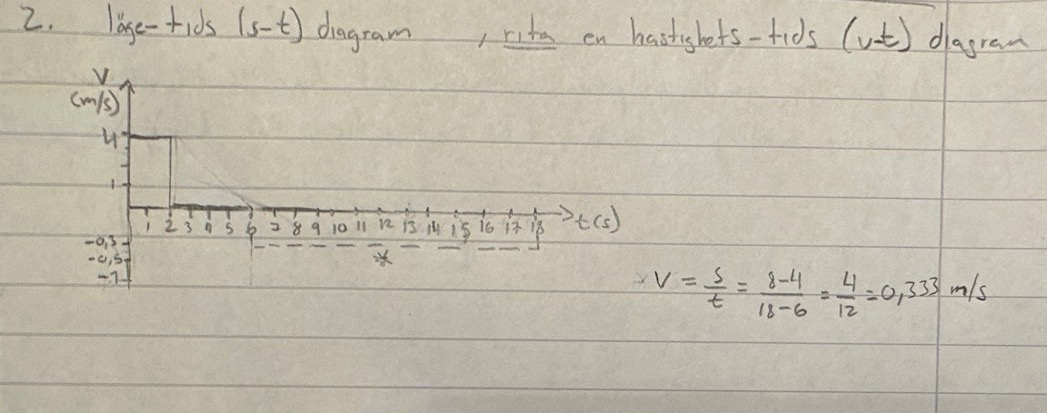 2. läge-tids (s-t) diagram , rita en hastighets-tids (v-t) diagram
V
(m/s)
4
1
1 2 3 4 5 6 7 8 9 10 11 12 13 14 15 16 17 18 t(s)
-0,3
-0,5
-1
*
V = s/t = 8-4/18-6 = 4/12 = 0,333 m/s